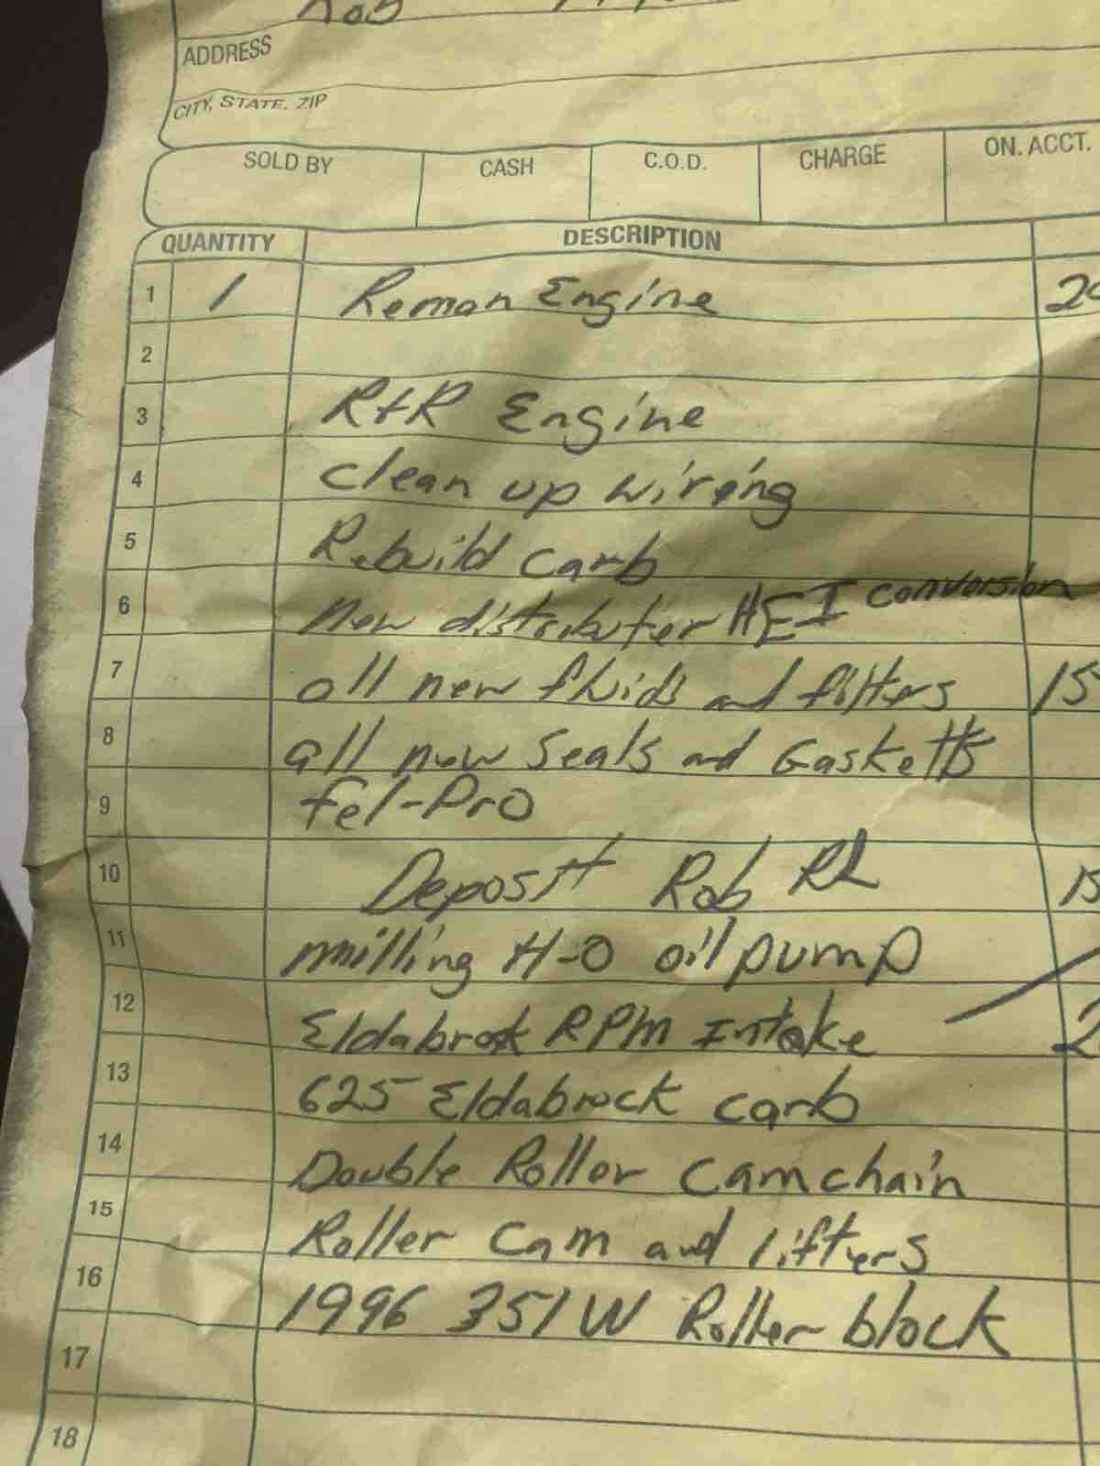 Rob
ADDRESS
CITY, STATE, ZIP
SOLD BY CASH C.O.D. CHARGE ON. ACCT.
QUANTITY DESCRIPTION
1 1 Reman Engine
2
3 R+R Engine
4 clean up wiring
5 Rebuild carb
6 new distributer HEI conversion
7 all new fluids and filters 15
8 all new Seals and Gasketts
9 fel-Pro
10 Deposit Rob RL 15
11 milling H-O oil pump
12 Eldabrock RPM Intake 2
13 625 Eldabrock carb
14 Double Roller Camchain
15 Roller Cam and lifters
16 1996 351W Roller block
17
18